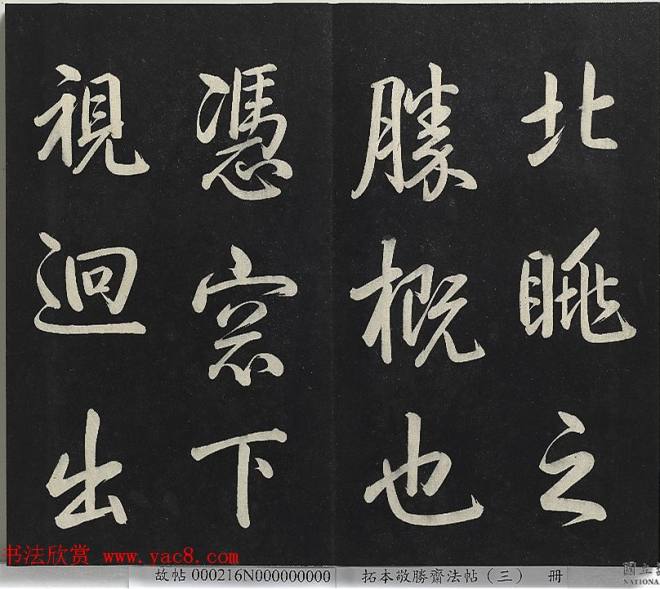 北眺之
勝概也
憑窓下
視迥出
书法欣赏 www.yac8.com
故帖 000216N000000000 拓本敬勝齋法帖（三） 册
國立
NATIONAL